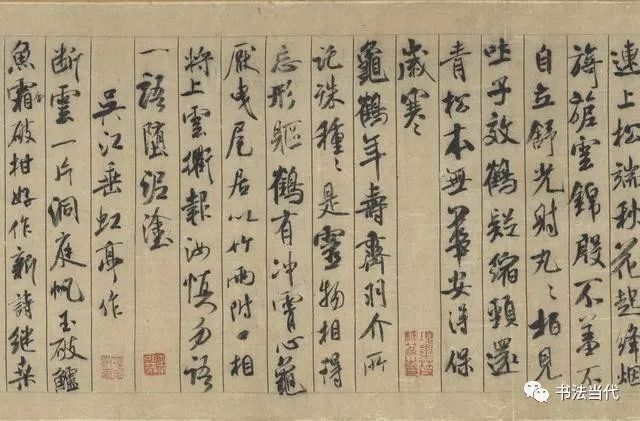 連上松端秋花起絳烟
旖旎雲錦殷不羞不
自立舒光射丸〻柏見
吐子效鶴疑縮頸還
青松本無華安得保
歲寒〻
龜鶴年壽齊羽介所
託殊種〻是靈物相得
忘形軀鶴有沖霄心龜
厭曳尾居以竹兩附口相
將上雲衢報汝慎勿語
一語墮泥塗
吳江垂虹亭作
断雲一片洞庭帆玉破鱸
魚霜破柑好作新詩継桒
书法当代